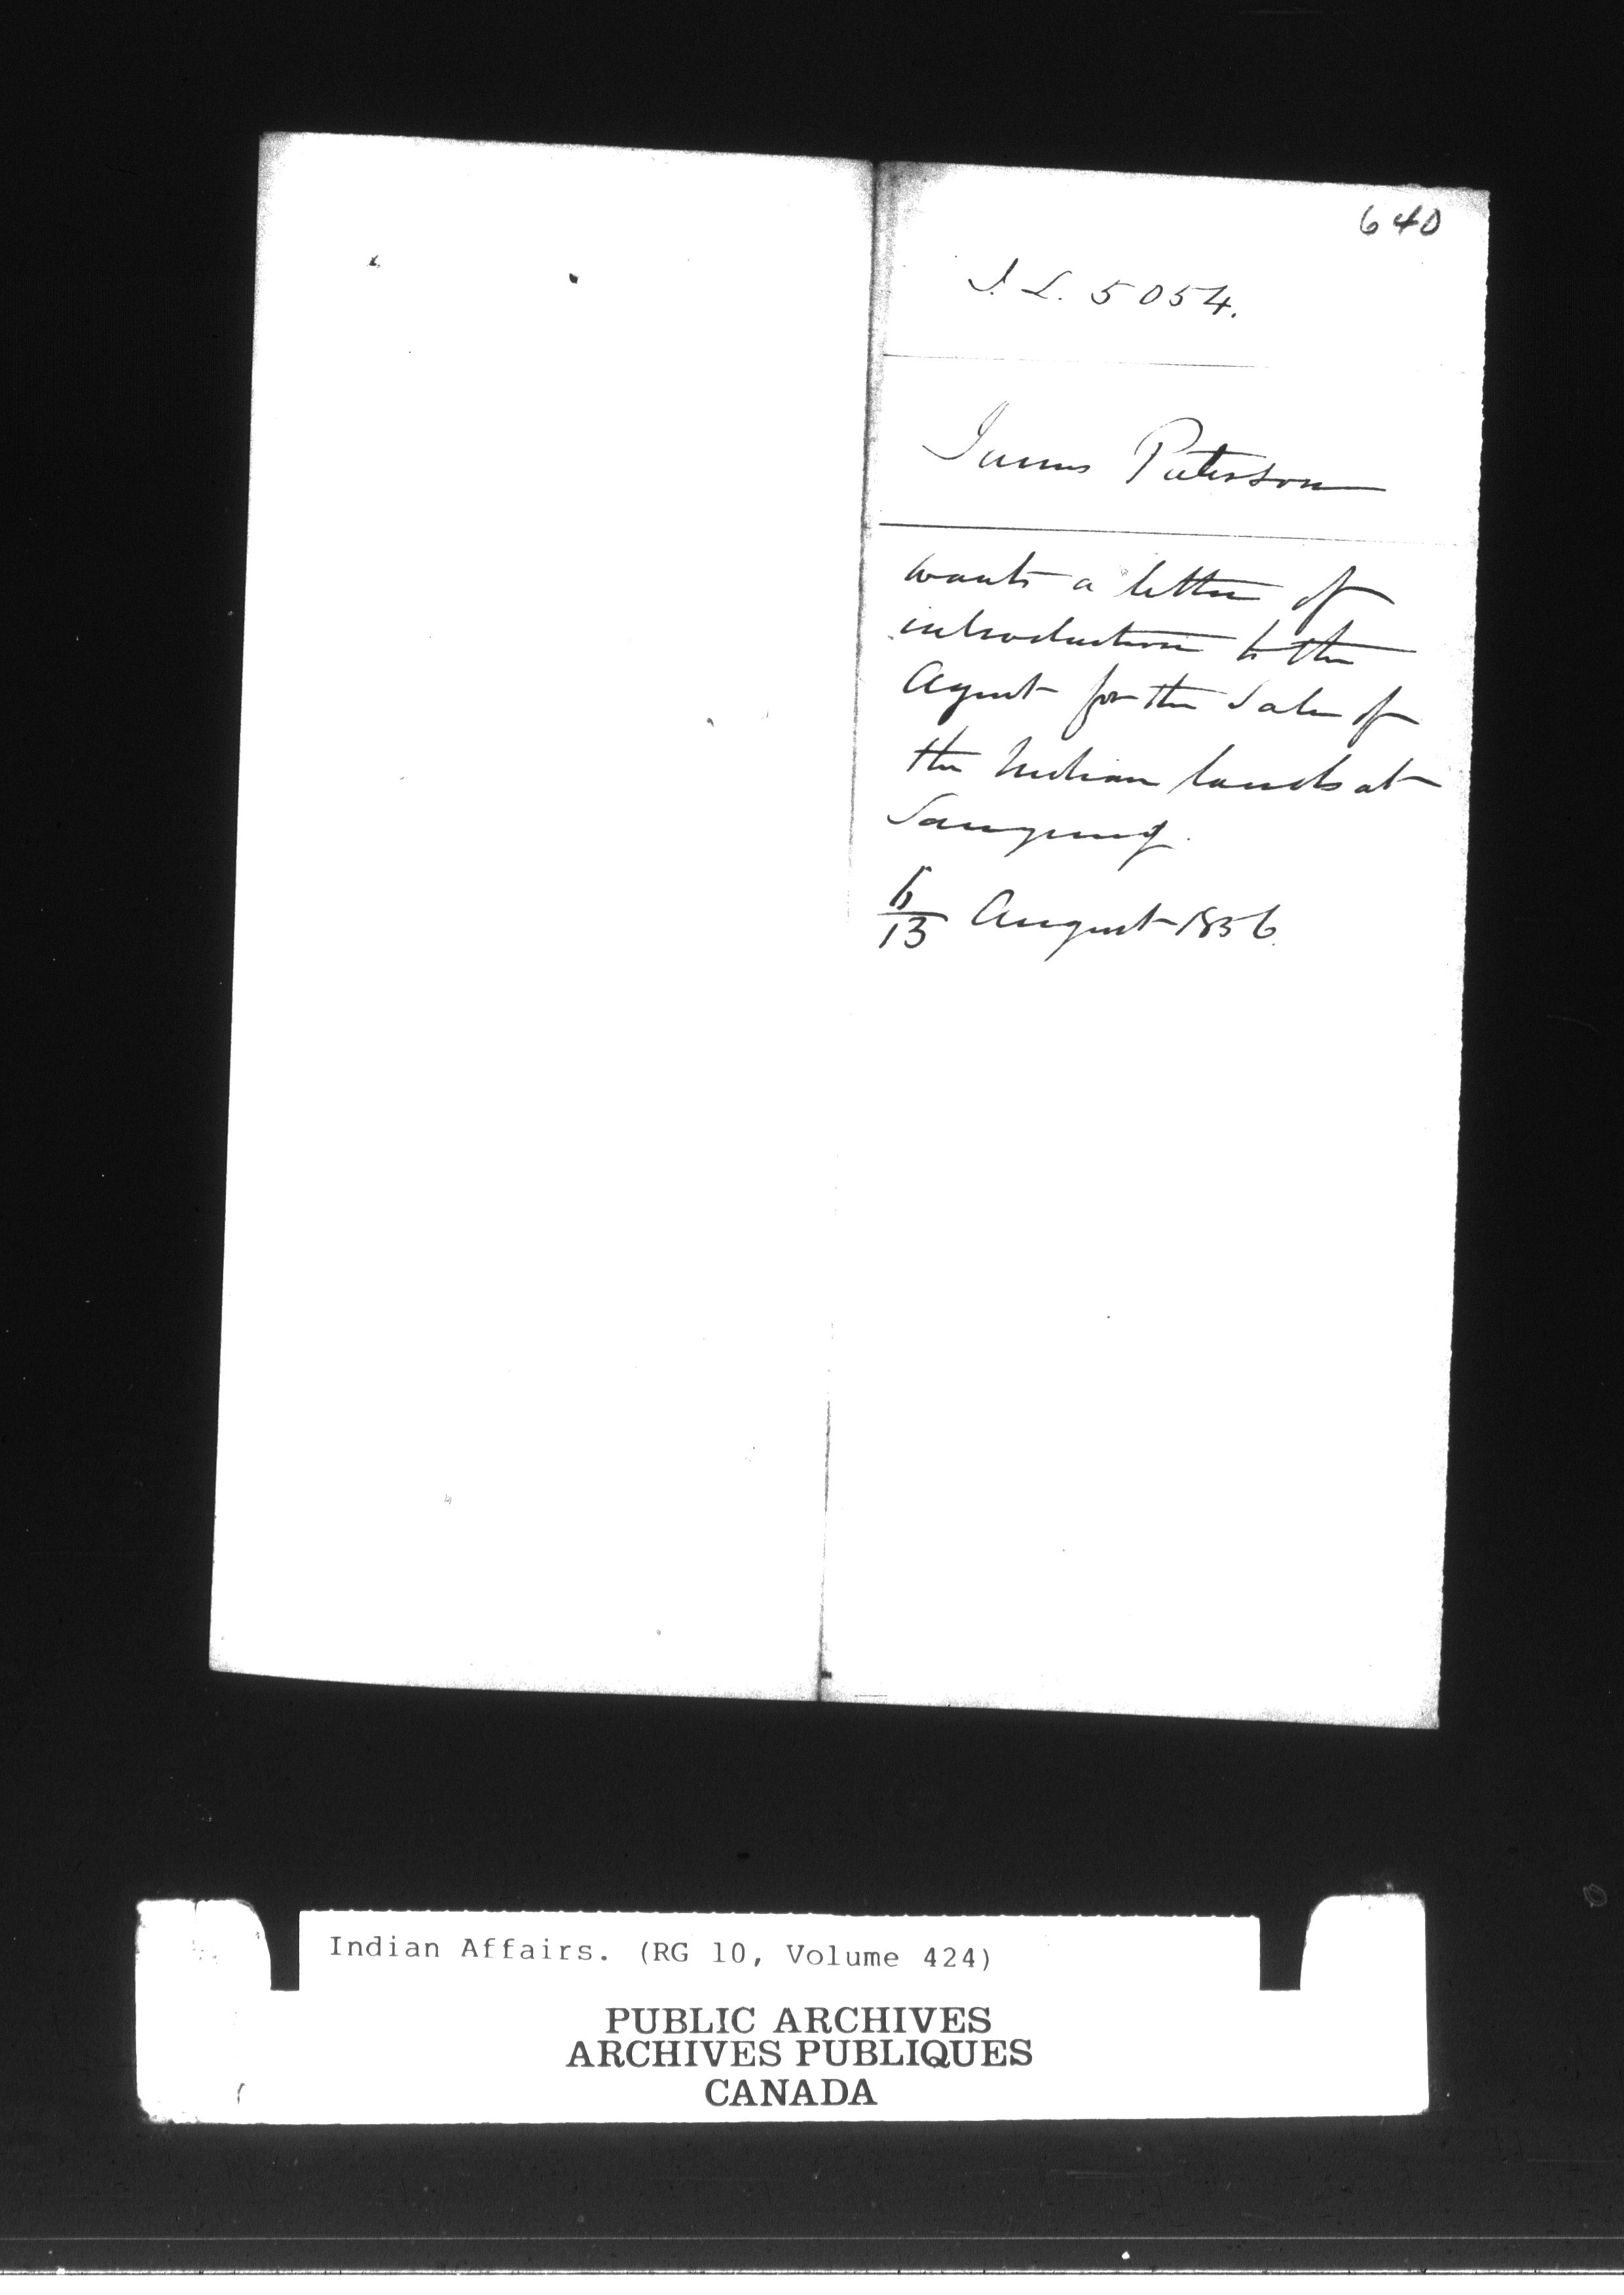 640
I. L. 5054.
James Paterson
wants a letter of
introduction to the
Agent for the Sale of
the Indian lands at
Saugeeng.
6/13 August 1856.
Indian Affairs. (RG 10, Volume 424)
PUBLIC ARCHIVES
ARCHIVES PUBLIQUES
CANADA